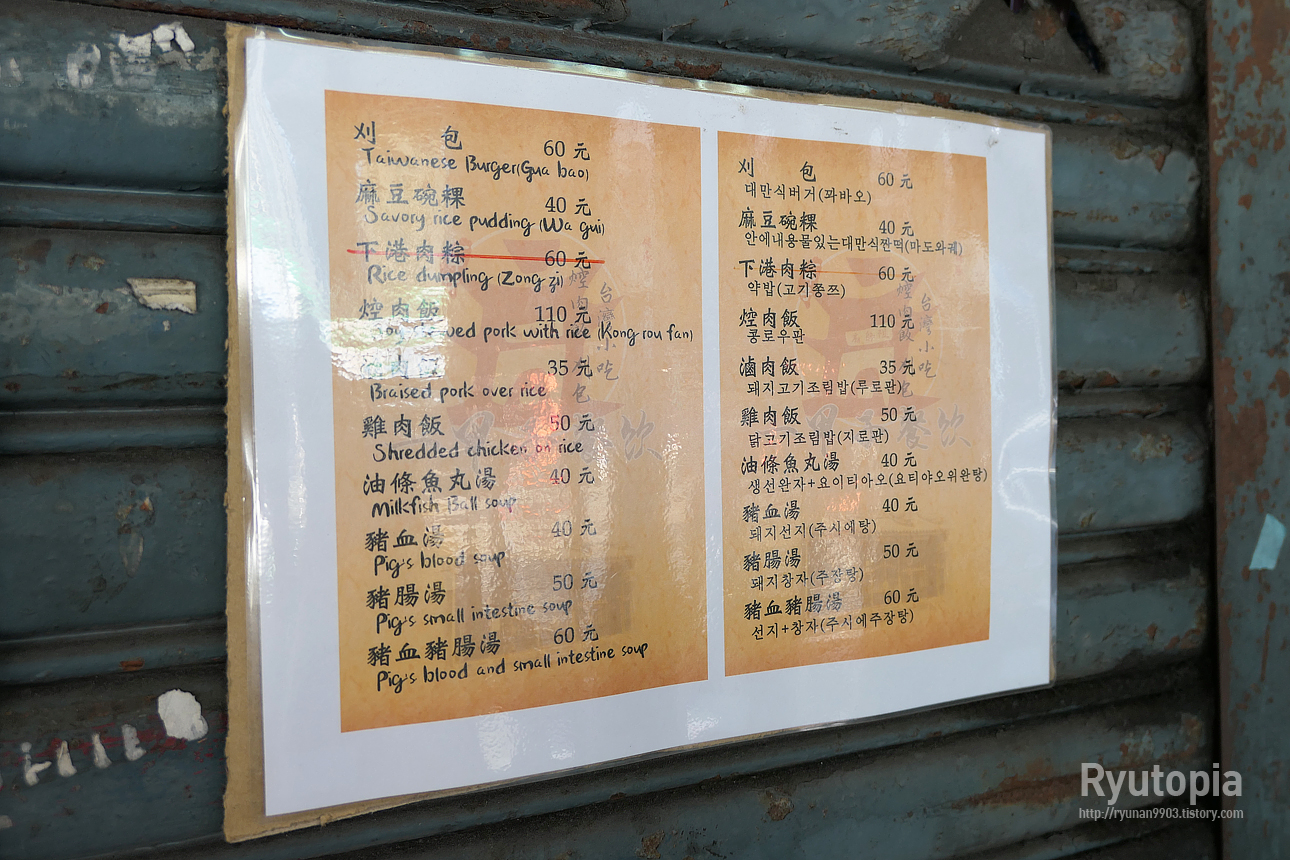 刈 包 60 元
Taiwanese Burger(Gua bao)
麻豆碗粿 40 元
Savory rice pudding (Wa gui)
下港肉粽 60 元
Rice dumpling (Zong zi)
焢肉飯 110 元
pork with rice (Kong rou fan)
35 元
Braised pork over rice
雞肉飯 50 元
Shredded chicken on rice
油條魚丸湯 40 元
Milkfish Ball soup
豬血湯 40 元
Pig's blood soup
豬腸湯 50 元
Pig's small intestine soup
豬血豬腸湯 60 元
Pig's blood and small intestine soup
刈 包 60 元
대만식버거(꽈바오)
麻豆碗粿 40 元
안에내용물있는대만식짠떡(마도와궤)
下港肉粽 60 元
약밥(고기쫑쯔)
焢肉飯 110 元
콩로우판
滷肉飯 35 元
돼지고기조림밥(루로판)
雞肉飯 50 元
닭고기조림밥(지로판)
油條魚丸湯 40 元
생선완자+요이티아오(요티야오위완탕)
豬血湯 40 元
돼지선지(주시에탕)
豬腸湯 50 元
돼지창자(주장탕)
豬血豬腸湯 60 元
선지+창자(주시에주장탕)
台灣小吃
Ryutopia
http://ryunan9903.tistory.com